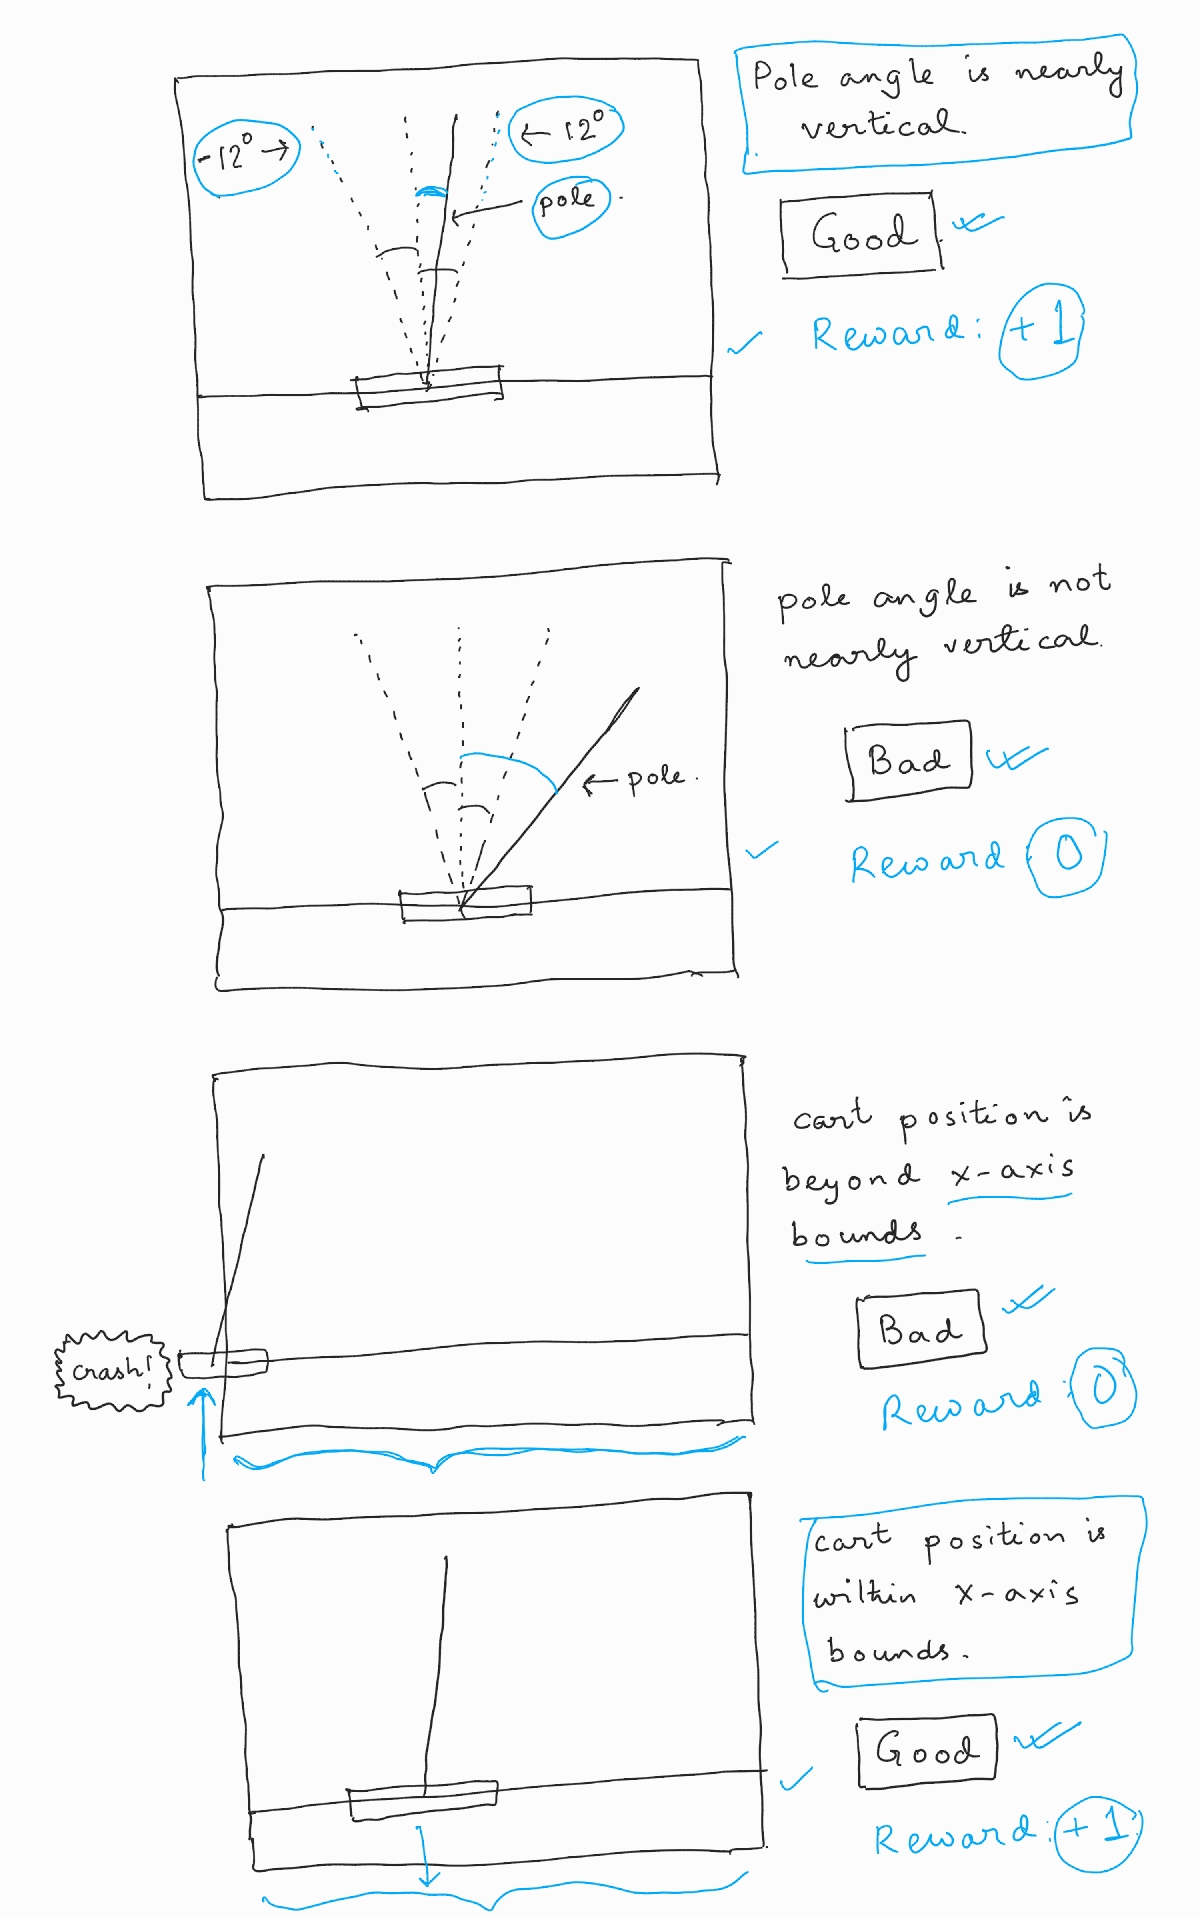 Pole angle is nearly
vertical.
-12° →
← 12°
pole.
Good
Reward: +1
pole angle is not
nearly vertical.
Bad
← pole.
Reward 0
cart position is
beyond x-axis
bounds.
Bad
crash!
Reward: 0
cart position is
within x-axis
bounds.
Good
Reward: +1